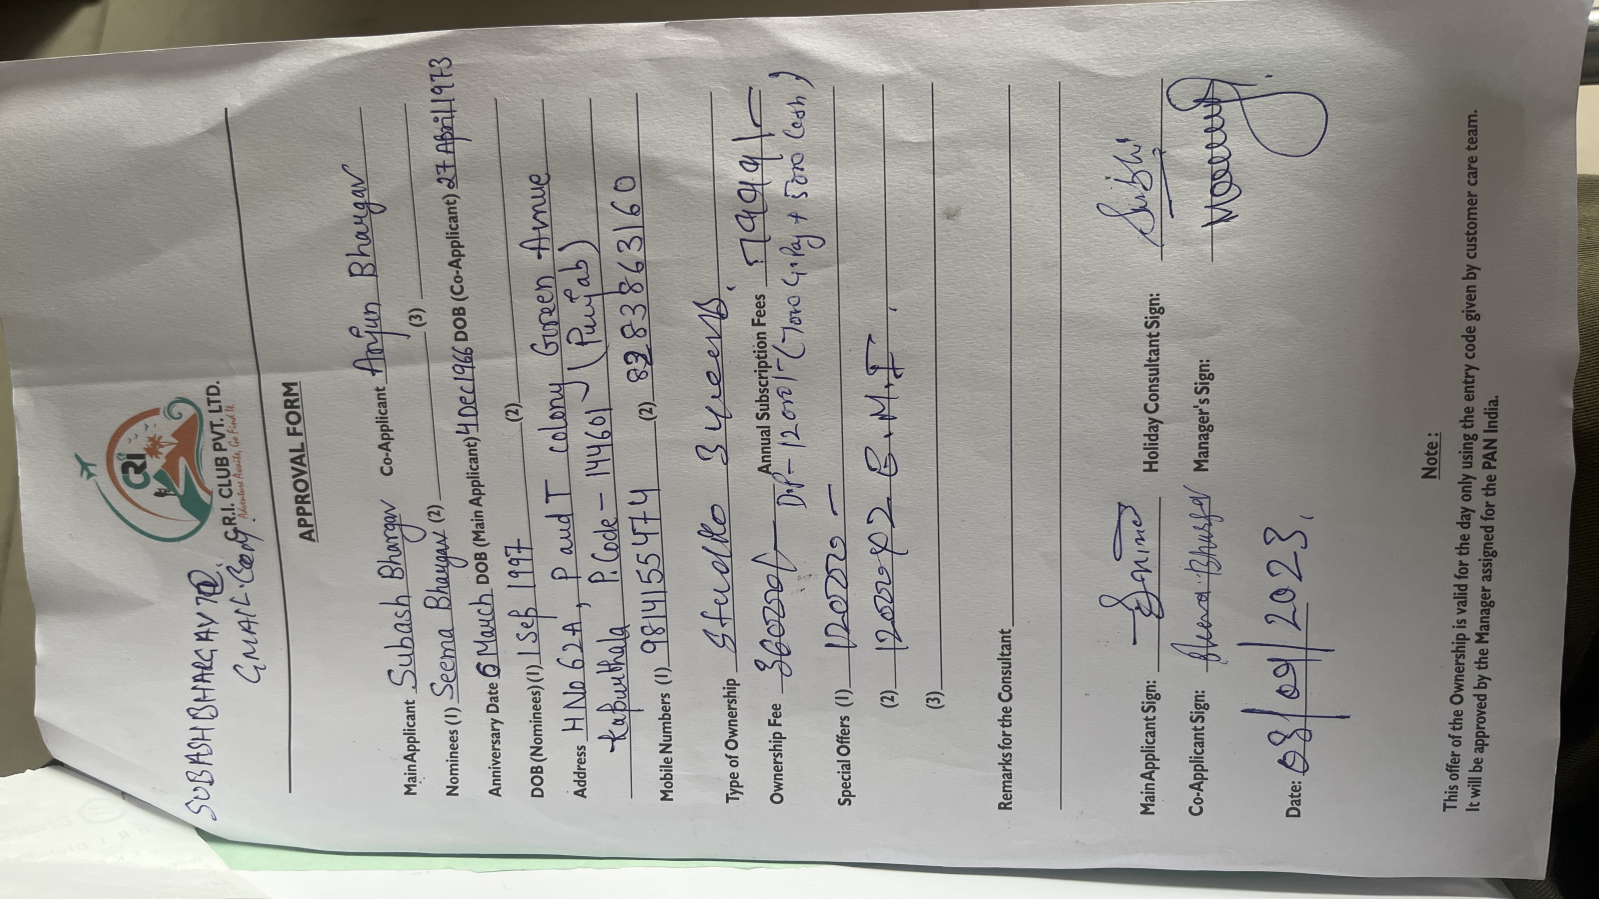 SUBASHBHARGAV7@
GMAIL.COM
CRI
C.R.I. CLUB PVT. LTD.
Adventure Awaits, Go Find It.
APPROVAL FORM
Main Applicant Subash Bhargav Co-Applicant Anjun Bhargav
Nominees (1) Seema Bhargav (2) (3)
Anniversary Date 6 March DOB (Main Applicant) 4 Dec 1966 DOB (Co-Applicant) 27 April 1973
DOB (Nominees) (1) 1 Sep 1997 (2)
Address H No 62A, P and T colony Green Avnue
kapurthala P.Code - 144601 (Punjab)
Mobile Numbers (1) 9814155474 (2) 8283863160
Type of Ownership Studio 3 years.
Ownership Fee 360000/- D.P - 12000/- (7000 G.Pay + 5000 Cash) Annual Subscription Fees 7999/-
Special Offers (1) 12000 -
(2) 12000 x 2 E.M.I.
(3)
Remarks for the Consultant
Main Applicant Sign: Holiday Consultant Sign:
Co-Applicant Sign: Manager's Sign:
Date: 03/09/2023.
Note :
This offer of the Ownership is valid for the day only using the entry code given by customer care team.
It will be approved by the Manager assigned for the PAN India.